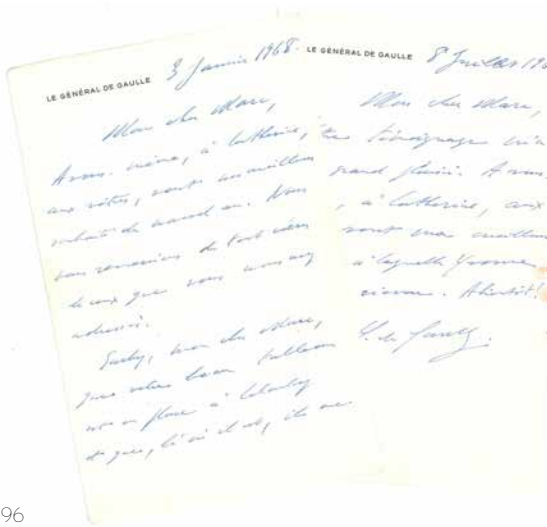 LE GÉNÉRAL DE GAULLE
3 Janvier 1968.
Mon cher Marc,
A vous-même, à Catherine,
aux vôtres, vont nos meilleurs
souhaits de nouvel an. Nous
vous remercions de tout cœur
de ceux que vous nous avez
adressés.
Sachez, mon cher Marc,
que votre beau tableau
est en place à Colombey
et que, là où il est, il
LE GÉNÉRAL DE GAULLE
8 Juillet 19
Mon cher Marc,
témoignage m'a
grand plaisir. A vous-
, à Catherine, aux
vont mes meilleur
à laquelle Yvonne
sienne. A bientôt!
C. de Gaulle.
96